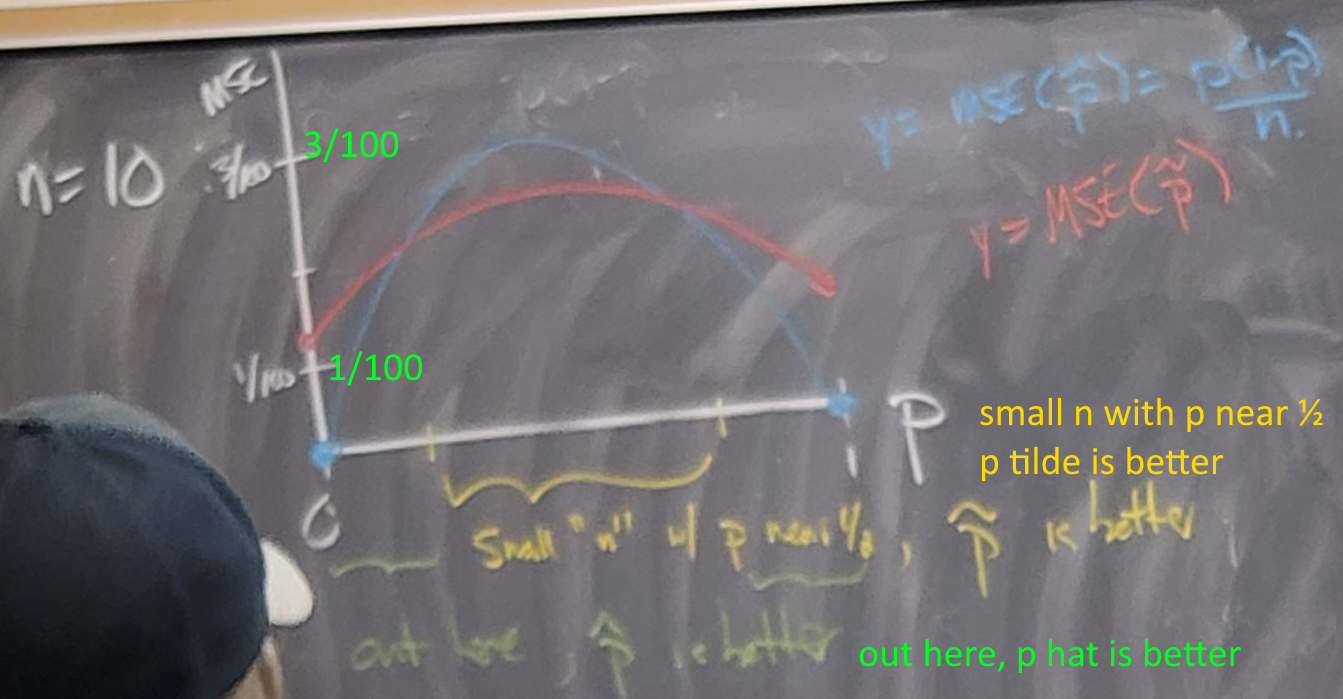 MSE
n=10
3/100
3/100
y = MSE(p̂) = p(1-p)/n.
y = MSE(p̃)
1/100
1/100
0
P
small n with p near ½
p tilde is better
Small "n" w/ p near ½, p̃ is better
out here, p̂ is better
out here, p hat is better